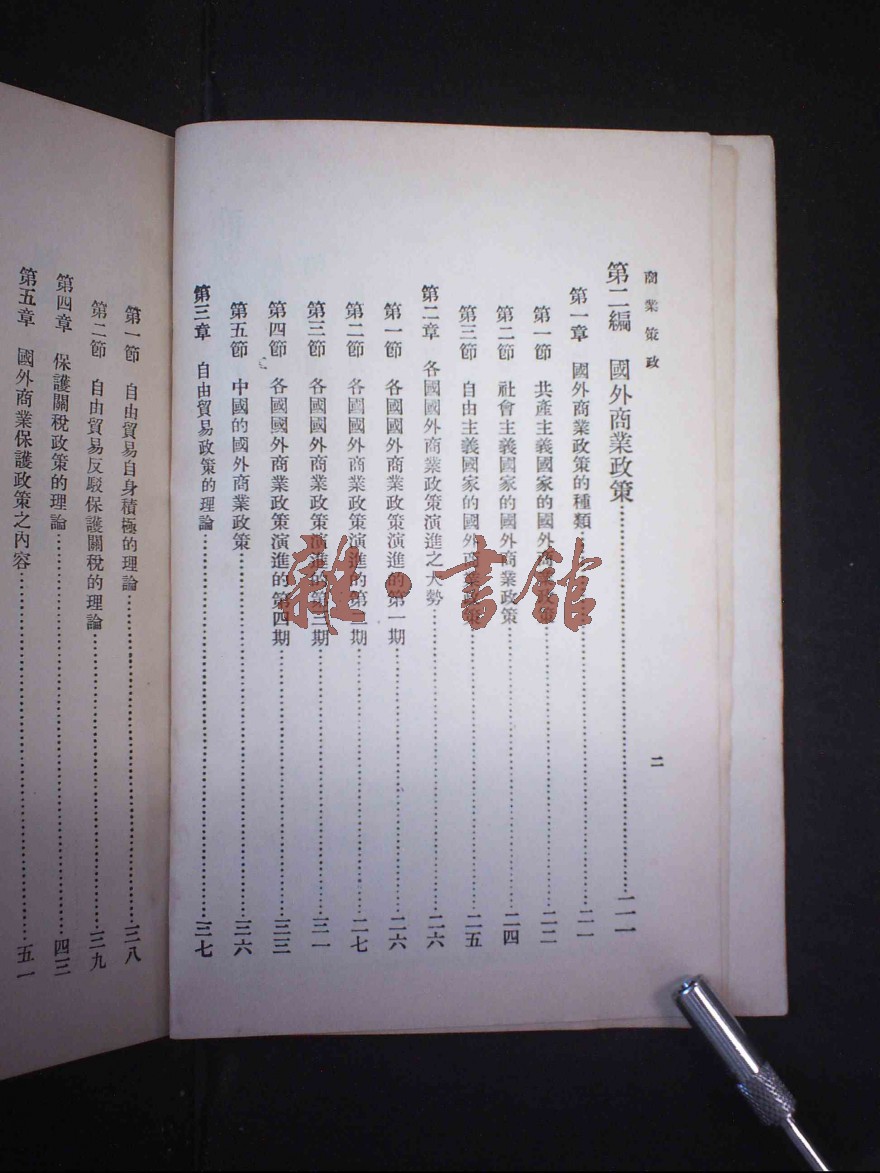 商業策政
二
第二編　國外商業政策……二一
第一章　國外商業政策的種類……二一
第一節　共產主義國家的國外商業政策……二二
第二節　社會主義國家的國外商業政策……二四
第三節　自由主義國家的國外商業政策……二五
第二章　各國國外商業政策演進之大勢……二六
第一節　各國國外商業政策演進的第一期……二六
第二節　各國國外商業政策演進的第二期……二七
第三節　各國國外商業政策演進的第三期……三一
第四節　各國國外商業政策演進的第四期……三三
第五節　中國的國外商業政策……三六
第三章　自由貿易政策的理論……三七
第一節　自由貿易自身積極的理論……三八
第二節　自由貿易反駁保護關稅的理論……三九
第四章　保護關稅政策的理論……四三
第五章　國外商業保護政策之內容……五一
雜·書館